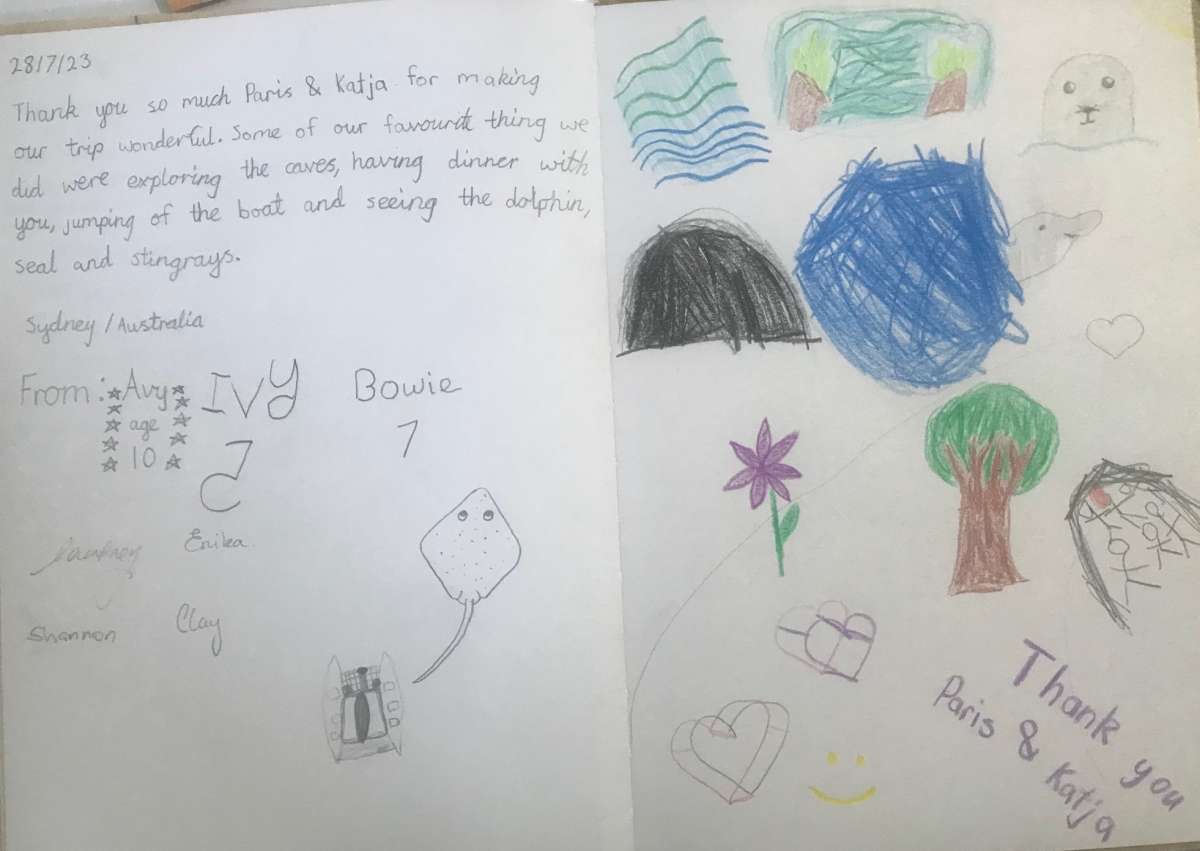 28/7/23
Thank you so much Paris & Katja for making
our trip wonderful. Some of our favourit thing we
did were exploring the caves, having dinner with
you, jumping of the boat and seeing the dolphin,
seal and stingrays.
Sydney / Australia
From: Avy IVY Bowie
age
10 7
Erika
Shannon Clay
Thank you
Paris & Katja